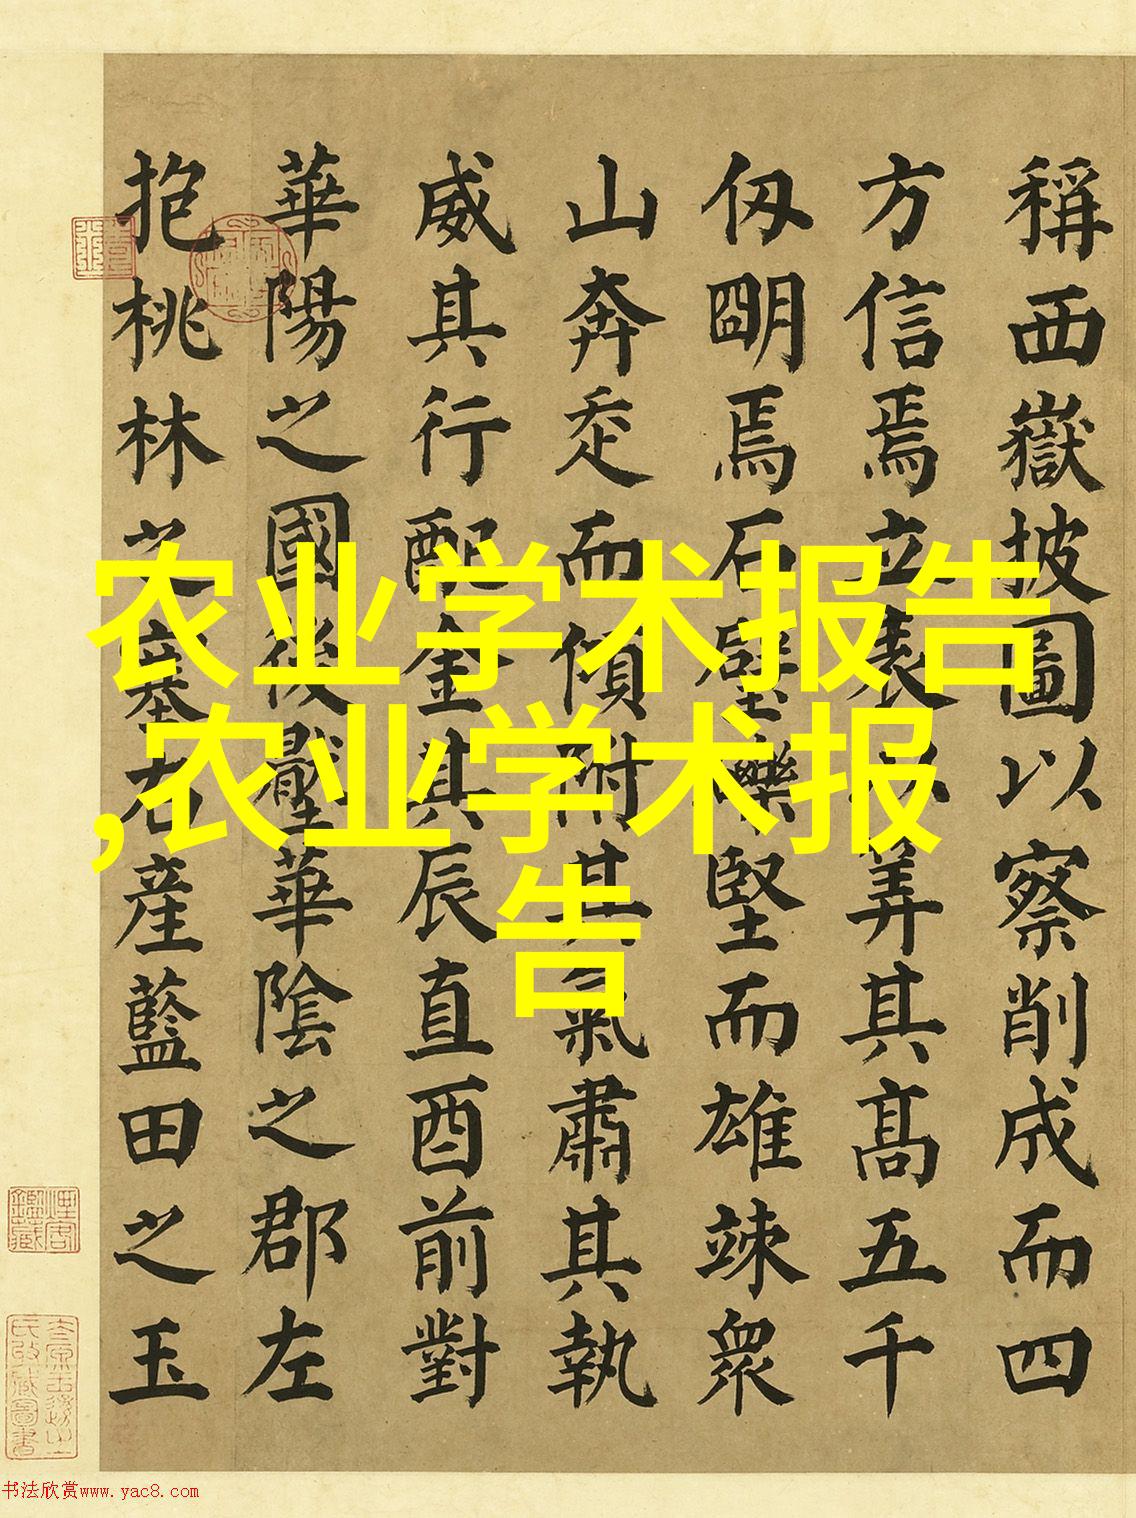 稱西嶽披圖以察削成而四
方信焉立表以筭其髙五千
仭朙焉石壁礫堅而雄竦衆
山奔走而傾附其氣肅其執
威其行配金其辰直酉前對
華陽之國後壓華陰之郡左
抱桃林之塞右産藍田之玉
农业学术报告
,农业学术报
告
书法欣赏www.yac8.com